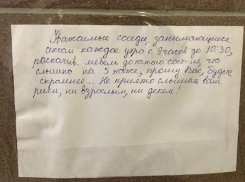 Уважаемые соседи, занимающиеся
сексом каждое утро с 9 часов до 10:30,
раскачив. мебель до такого сост-ия, что
слышно на 5 этаже, прошу Вас, будьте
скромнее... Не приятно слышать ваш
рык, ни взрослым, ни детям!